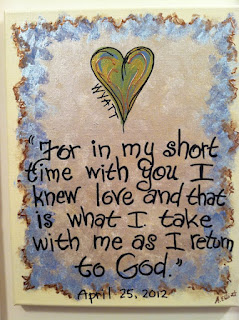 WYATT
"For in my short
time with you I
knew love and that
is what I take
with me as I return
to God."
April 25, 2012